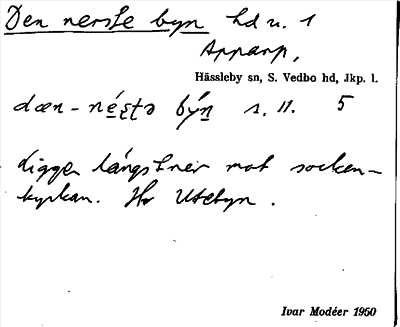 Den nerste byn hd n. 1
Apparp,
Hässleby sn, S. Vedbo hd, Jkp. l.
dæn-néʂtə býn s. 11. 5
ligger längst ner mot socken-
kyrkan. Hr Utebyn.
Ivar Modéer 1950